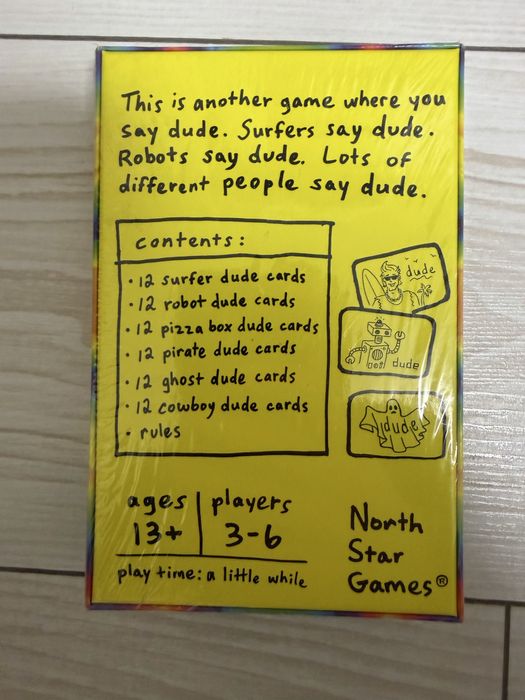 This is another game where you
say dude. Surfers say dude.
Robots say dude. Lots of
different people say dude.
contents:
• 12 surfer dude cards
• 12 robot dude cards
• 12 pizza box dude cards
• 12 pirate dude cards
• 12 ghost dude cards
• 12 cowboy dude cards
• rules
dude
dude
dude
ages
13+
players
3-6
play time: a little while
North
Star
Games®